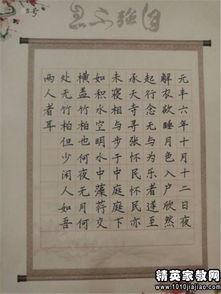 元丰六年十月十二日夜
解衣欲睡月色入户欣然
起行念无与为乐者遂至
承天寺寻张怀民怀民亦
未寝相与步于中庭庭下
如积水空明水中藻荇交
横盖竹柏也何夜无月何
处无竹柏但少闲人如吾
两人者耳
精英家教网
http://www.1010jiajiao.com